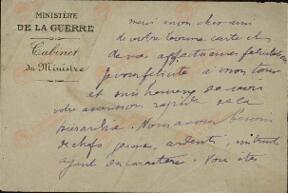 MINISTÈRE
DE LA GUERRE
Cabinet
du Ministre
Merci mon cher ami
de votre bonne carte et
de vos affectueuses félicitations
je vous félicite à mon tour
et suis heureux de voir
votre ascension rapide
Nous avons besoin
de chefs jeunes, ardents, instruits
ayant du caractère. Vous êtes